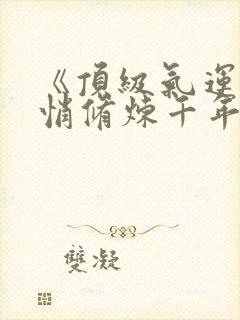 《頂級氣運
悄脩煉千年
雙凝